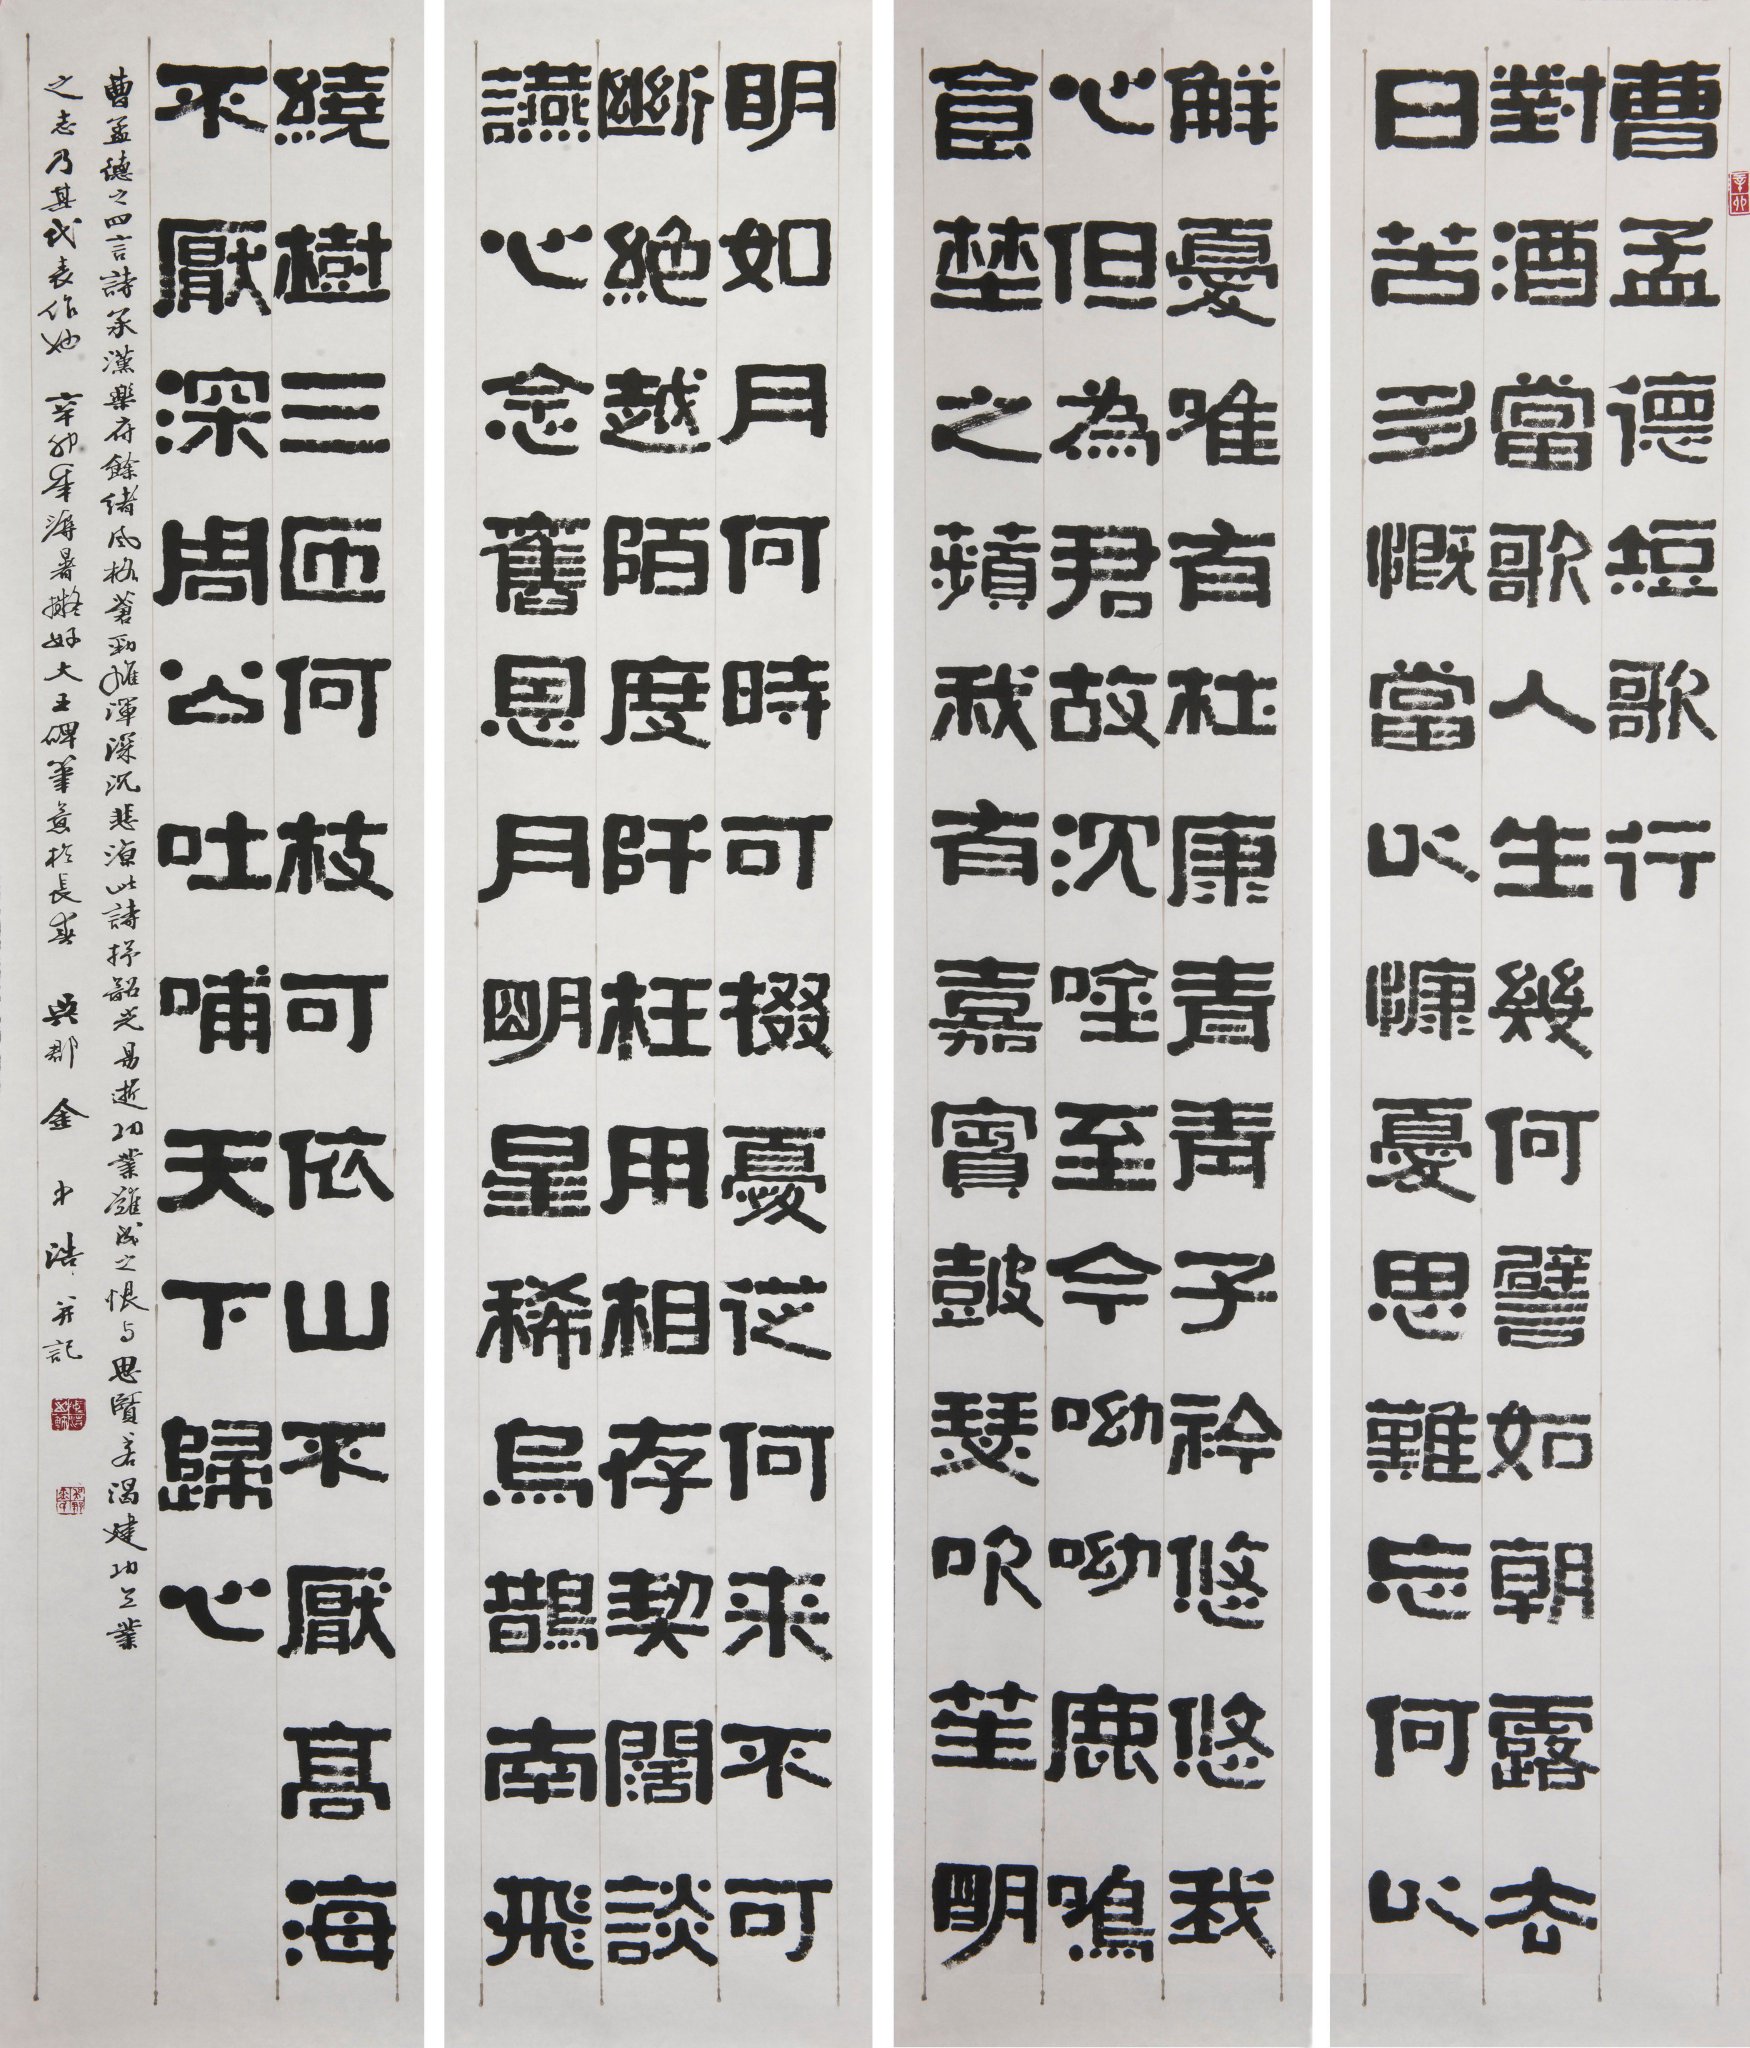 辛卯
曹孟德短歌行
對酒當歌人生幾何譬如朝露去
日苦多慨當以慷憂思難忘何以
解憂唯有杜康青青子衿悠悠我
心但為君故沉唫至今呦呦鹿鳴
食埜之蘋我有嘉賓鼓瑟吹笙明
明如月何時可掇憂從何来不可
斷絶越陌度阡枉用相存契闊談
讌心念舊恩月明星稀烏鵲南飛
繞樹三匝何枝可依山不厭高海
不厭深周公吐哺天下歸心
曹孟德之四言詩承漢樂府餘緒風格蒼勁雄渾深沉悲涼此詩抒韶光易逝功業難成之恨与思賢若渴建功立業
之志乃其代表作也 辛卯年溽暑擬好大王碑筆意於長春 吳郡 金中浩并記